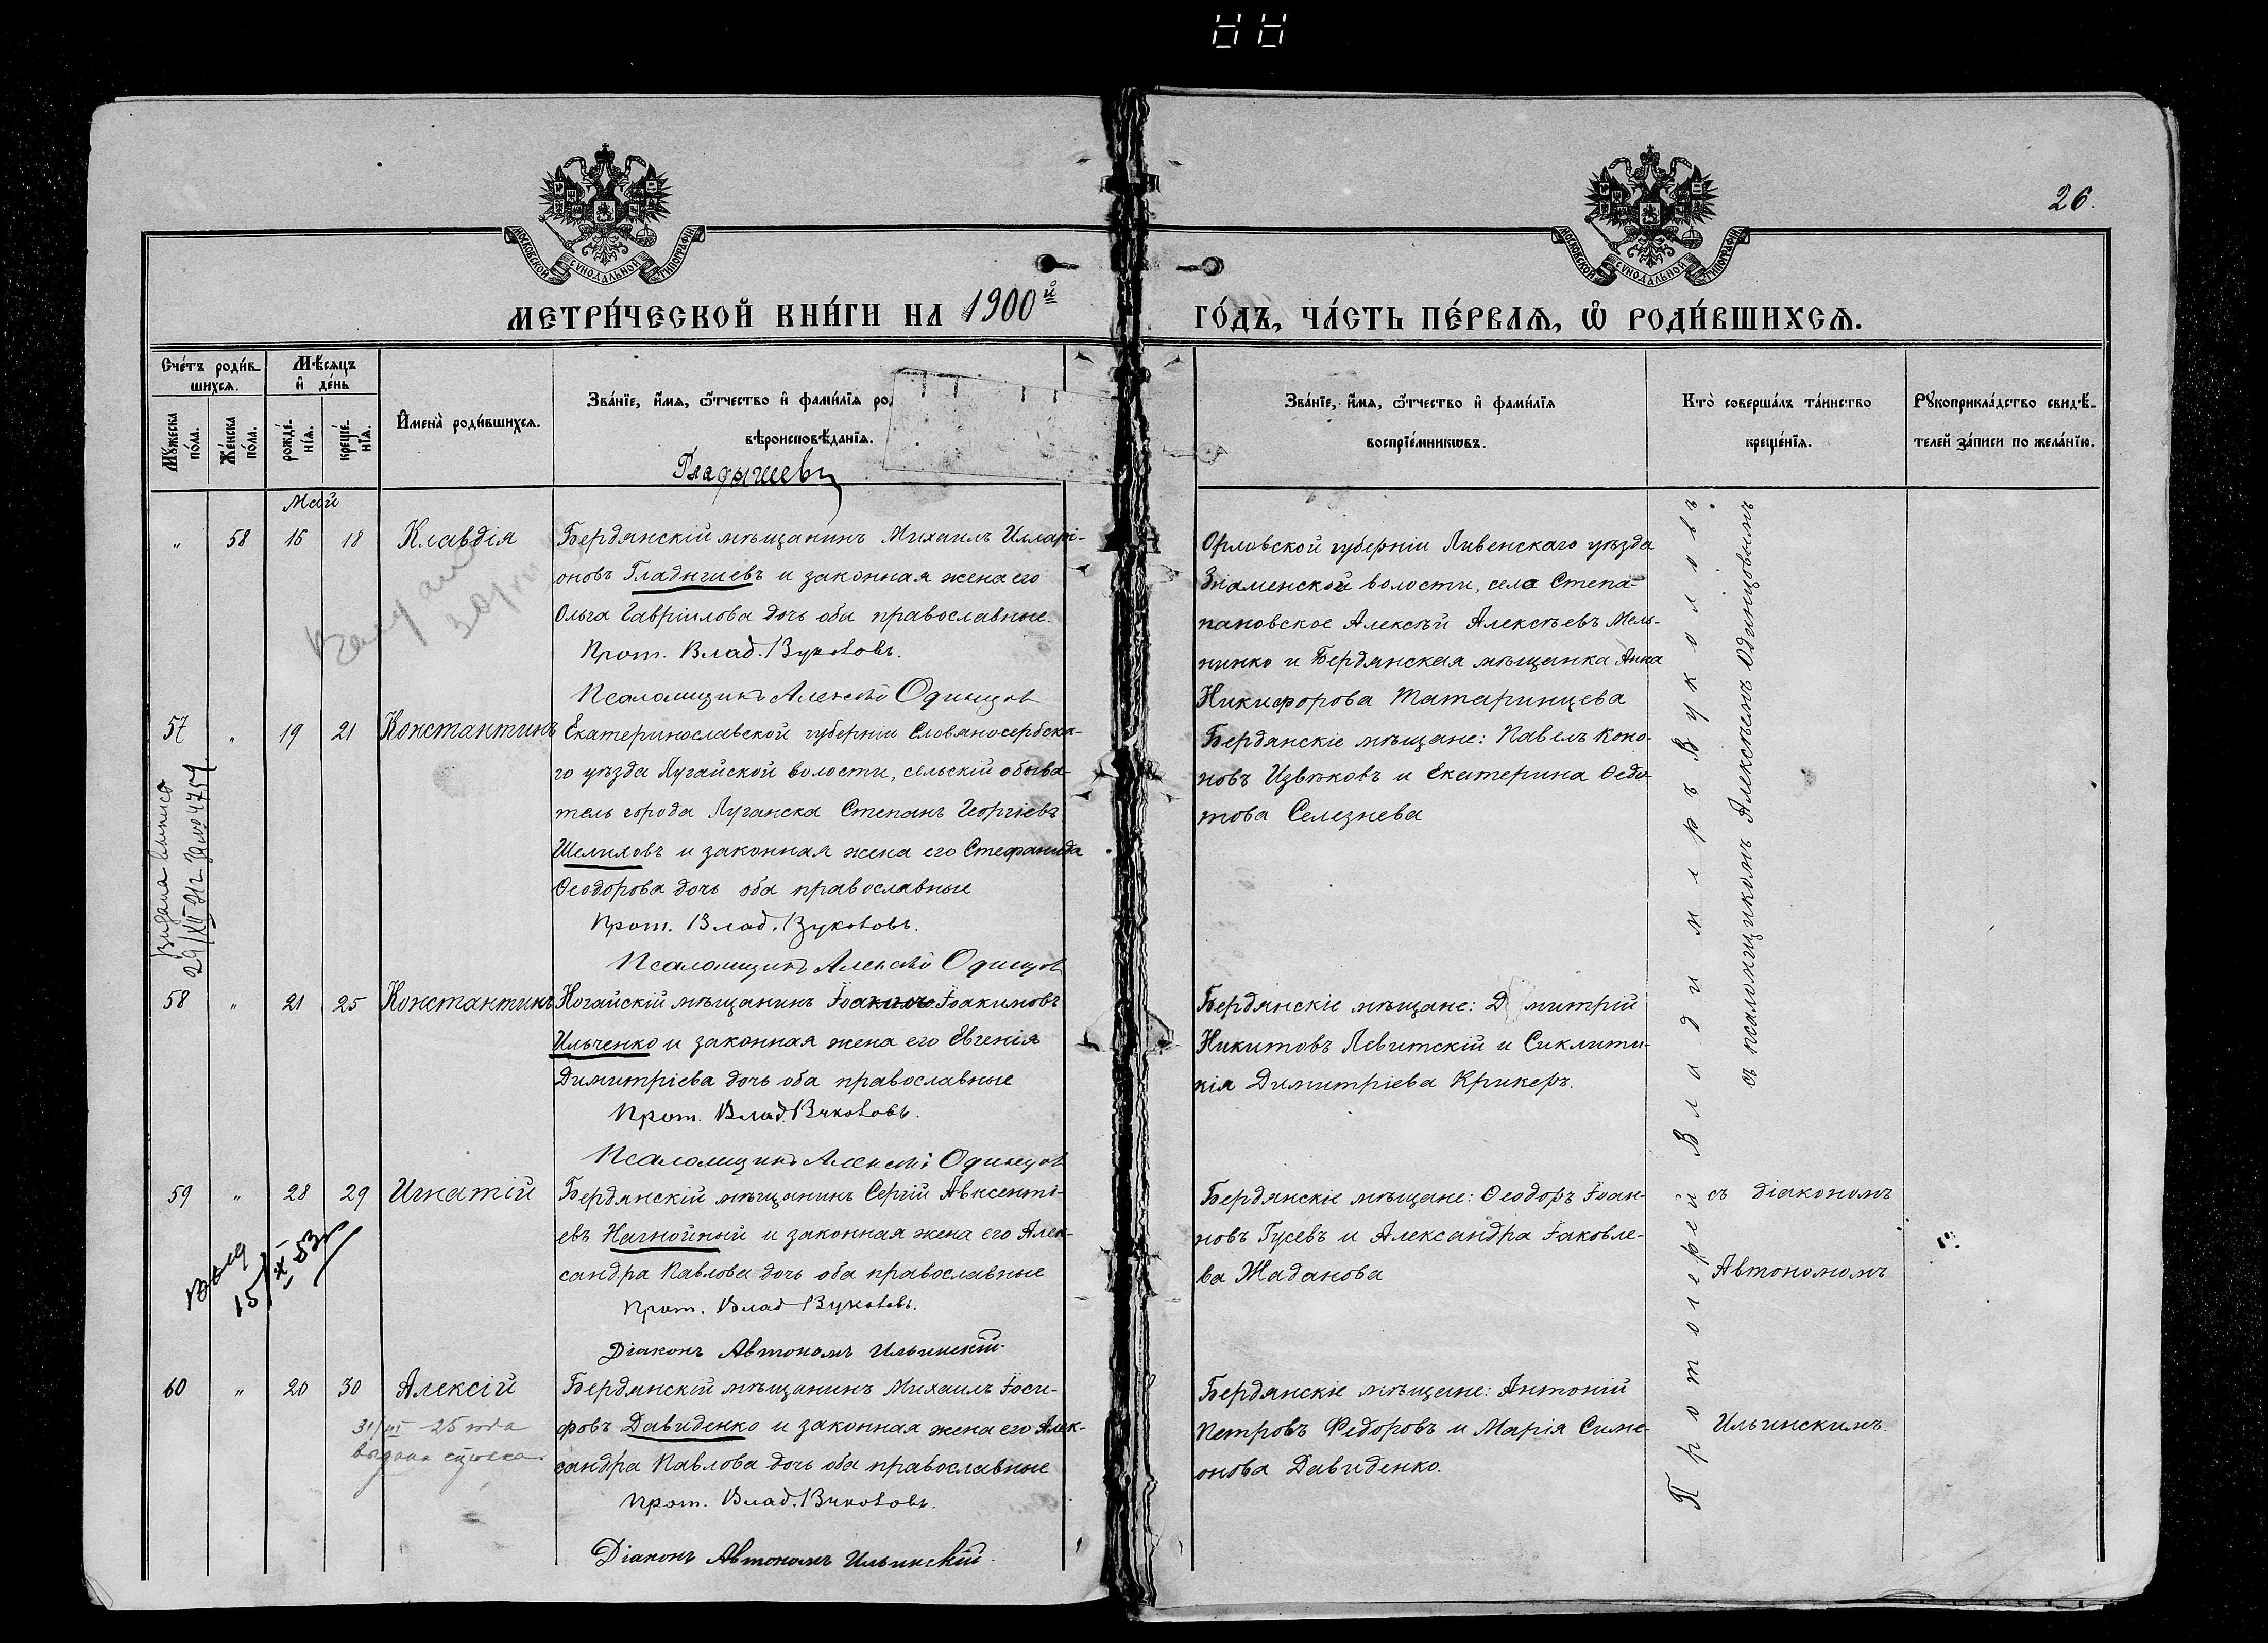 26.
МОСКОВСКОЙ СѴНОДАЛЬНОЙ ТИПОГРАФІИ
МОСКОВСКОЙ СѴНОДАЛЬНОЙ ТИПОГРАФІИ
МЕТРИ́ЧЕСКОЙ КНИ́ГИ НА 1900й ГО́ДЪ, ЧА́СТЬ ПЕ́РВАѦ, Ѡ РОДИ́ВШИХСѦ.
Сче́тъ роди́в-
шихсѧ.
Мѣ́сѧцъ
и де́нь
Мꙋ́жеска по́ла.
Же́нска по́ла.
рожде́-
нїѧ.
креще́-
нїѧ.
Имена̀ роди́вшихсѧ.
Зва́нїе, и́мѧ, ѻ́тчество и фами́лїѧ ро
вѣроисповѣ́данїѧ.
Гладышевъ
Зва́нїе, и́мѧ, ѻ́тчество и фами́лїѧ
воспрїе́мникѡвъ.
Кто̀ соверша́лъ та́инство
креще́нїѧ.
Рꙋкоприкла́дство свидѣ́-
телей за́писи по жела́нїю.
Май
„ 58 16 18 Клавдія
Бердянскій мѣщанинъ Михаилъ Илларі-
оновъ Гладышевъ и законная жена его
Ольга Гавріилова дочь оба православные.
Прот. Влад. Вуколовъ.
Псаломщикъ Алексѣй Одинцов
Орловской губерніи Ливенскаго уѣзда
Знаменской волости, села Степа-
пановское Алексѣй Алексѣевъ Мель-
нинко и Бердянская мѣщанка Анна
Никифорова Татаринцева
57 „ 19 21 Константинъ
Выдана выпись
29/XII 912 За № 4759
Екатеринославской губерніи Словяносербска-
го уѣзда Лугайской волости, сельскій обыва-
тель города Луганска Степанъ Георгіевъ
Шелиховъ и законная жена его Стефанида
Ѳеодорова дочь оба православные
Прот. Влад. Вуколовъ.
Псаломщикъ Алексѣй Одинцов
Бердянскіе мѣщане: Павелъ Коно-
новъ Извѣковъ и Екатерина Ѳедо-
това Селезнева
58 „ 21 25 Константинъ
Ногайскій мѣщанинъ Іоакимъ Іоакимовъ
Ильченко и законная жена его Евгенія
Димитріева дочь оба православные
Прот. Влад. Вуколовъ.
Псаломщикъ Алексѣй Одинцов
Бердянскіе мѣщане: Дмитрій
Никитовъ Левитскій и Сиклити-
кія Димитріева Крикеръ.
59 „ 28 29 Игнатій
Выд
15/X 53г
Бердянскій мѣщанинъ Сергій Авксенті-
евъ Нагнойный и законная жена его Алек-
сандра Павлова дочь оба православные
Прот. Влад Вуколовъ.
Діаконъ Автономъ Ильинскій.
Бердянскіе мѣщане: Ѳеодоръ Іоан-
новъ Гусевъ и Александра Іаковле-
ва Жаданова
60 „ 20 30 Алексій
31/III - 25 года
выдана
Бердянскій мѣщанинъ Михаилъ Іоси-
фовъ Давиденко и законная жена его Алек-
сандра Павлова дочь оба православные
Прот. Влад. Вуколовъ.
Діаконъ Автономъ Ильинскій.
Бердянскіе мѣщане: Антоній
Петровъ Федоровъ и Марія Симе-
онова Давиденко.
Протоіерей Владиміръ Вуколовъ
съ псаломщикомъ Алексѣемъ Одинцовымъ
съ діакономъ
Автономомъ
Ильинскимъ.